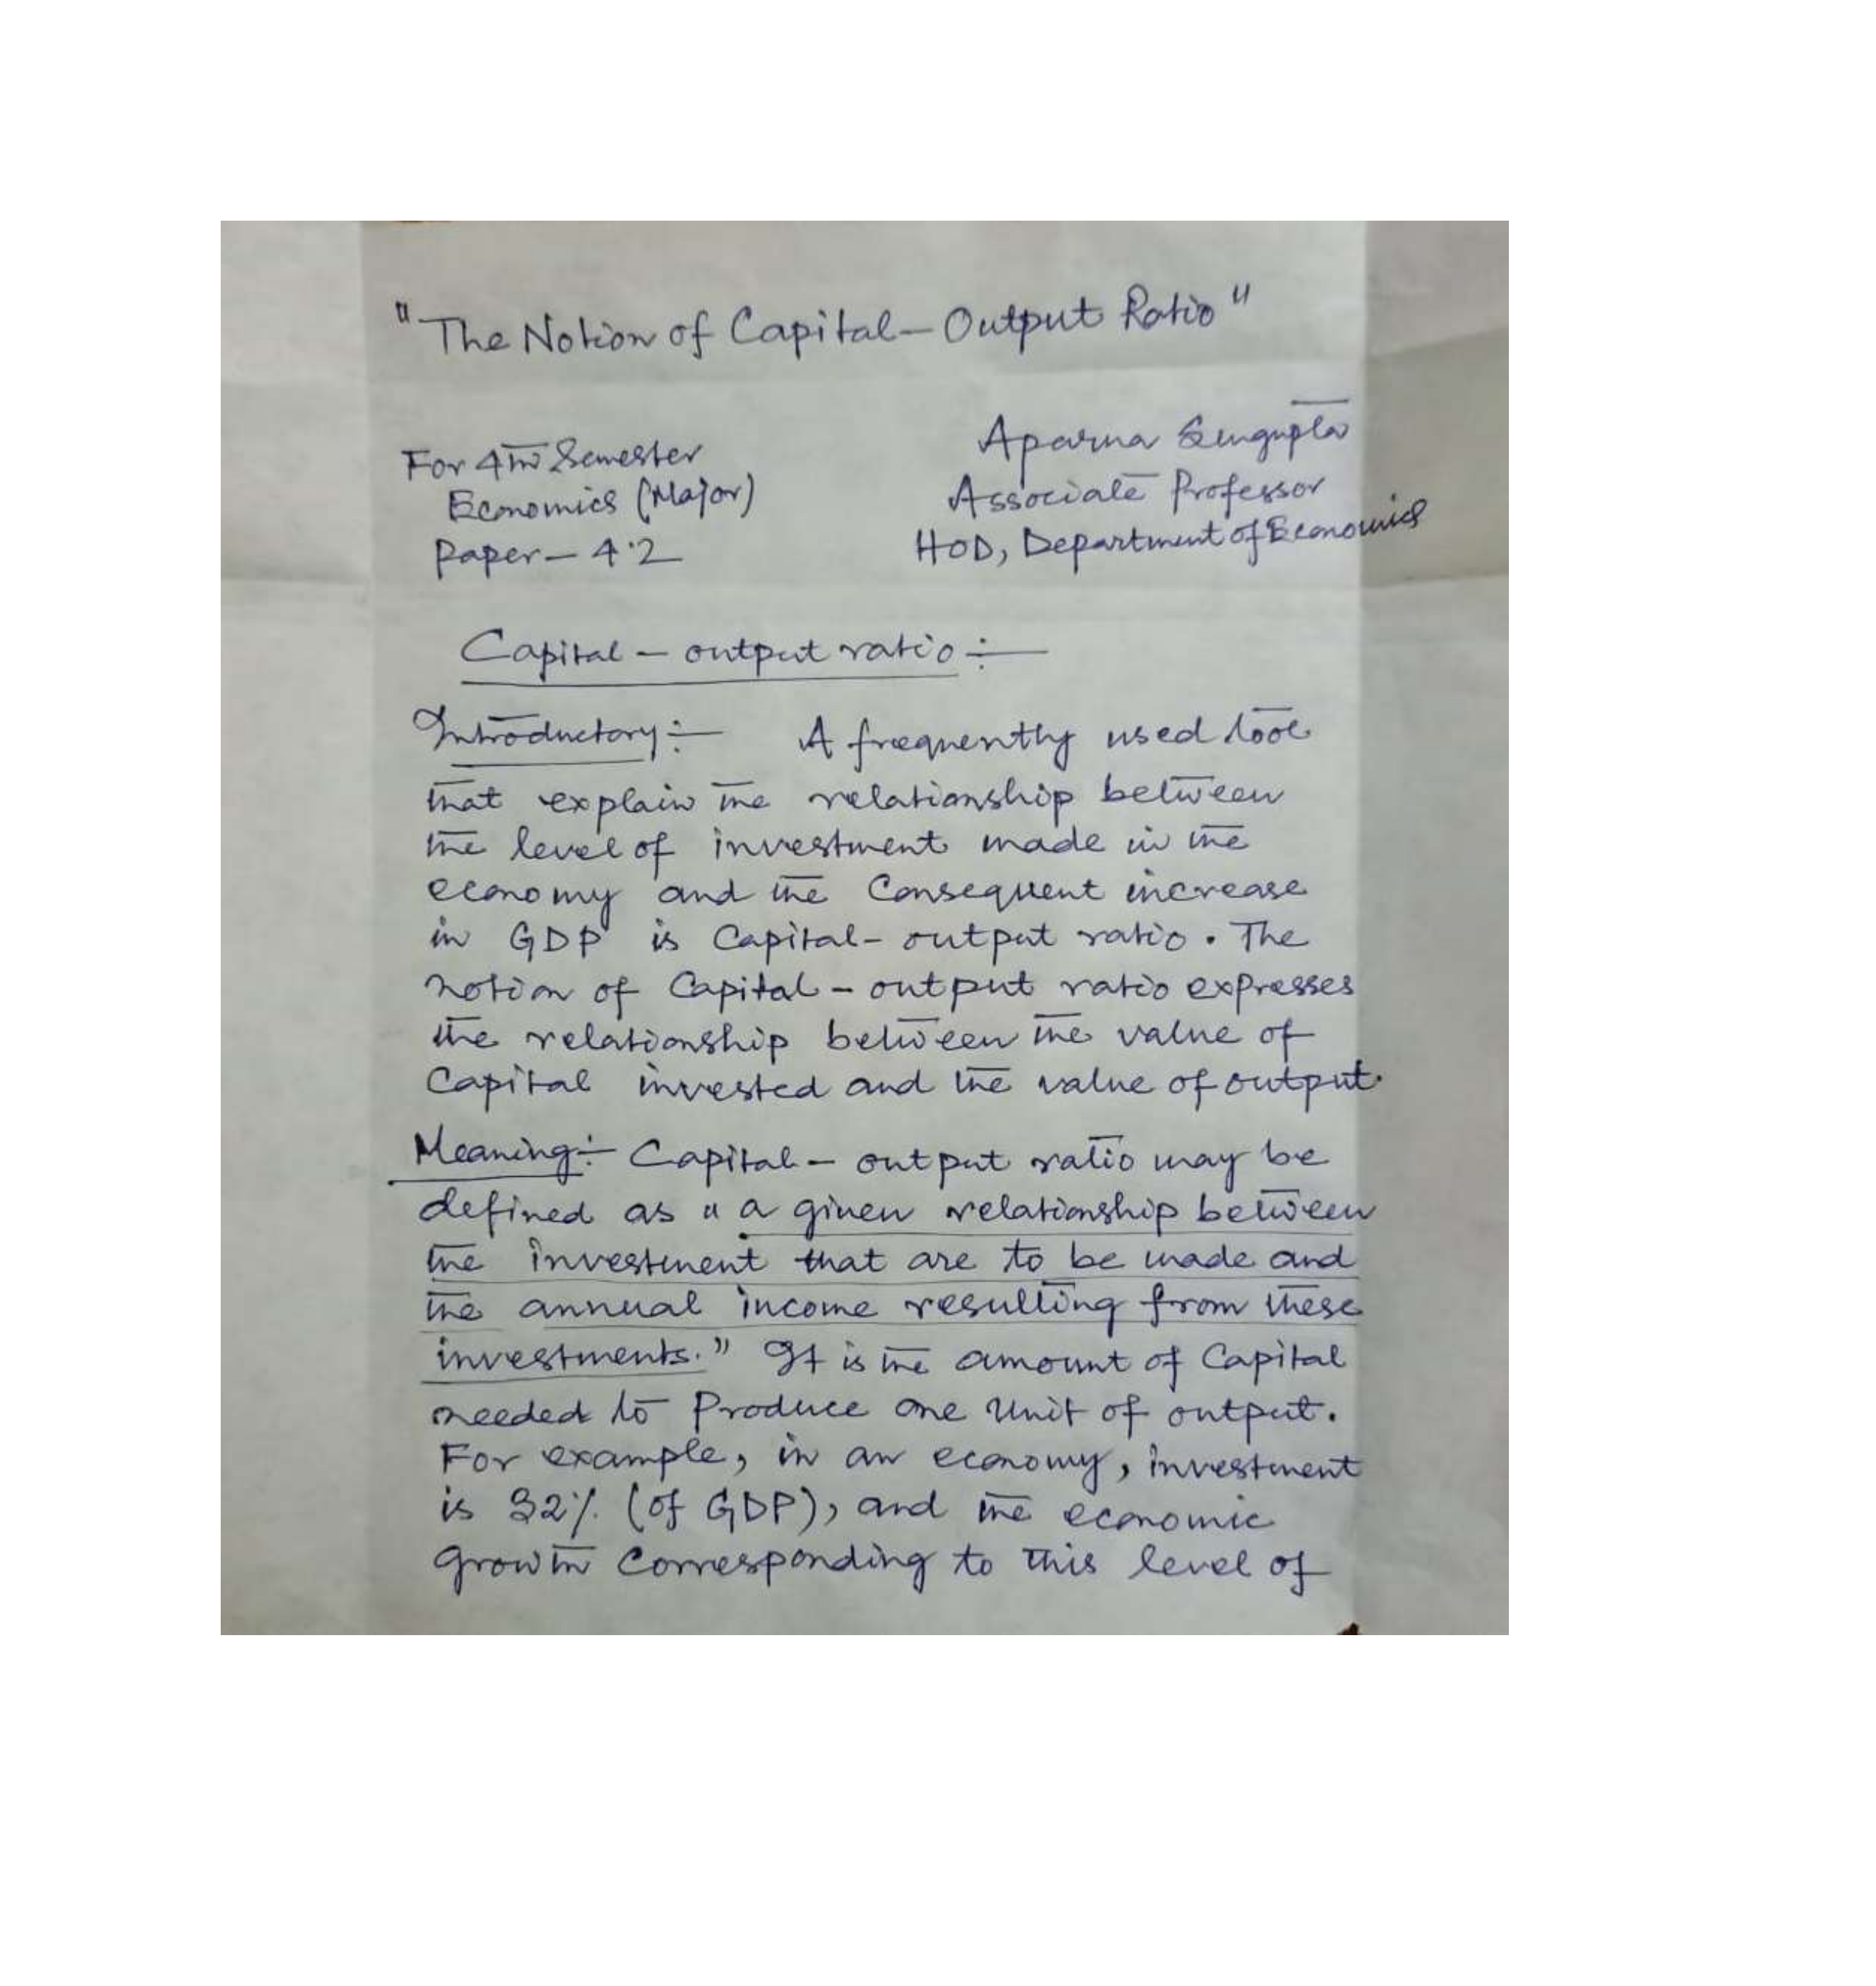 "The Notion of Capital-Output Ratio"
For 4th Semester
Economics (Major)
Paper - 4.2
Aparna Sengupta
Associate Professor
HOD, Department of Economics
Capital - output ratio :-
Introductory :- A frequently used tool
that explain the relationship between
the level of investment made in the
economy and the Consequent increase
in GDP is Capital - output ratio. The
notion of Capital - output ratio expresses
the relationship between the value of
Capital invested and the value of output.
Meaning :- Capital - output ratio may be
defined as "a given relationship between
the investment that are to be made and
the annual income resulting from these
investments." It is the amount of Capital
needed to Produce one Unit of output.
For example, in an economy, investment
is 32% (of GDP), and the economic
growth Corresponding to this level of